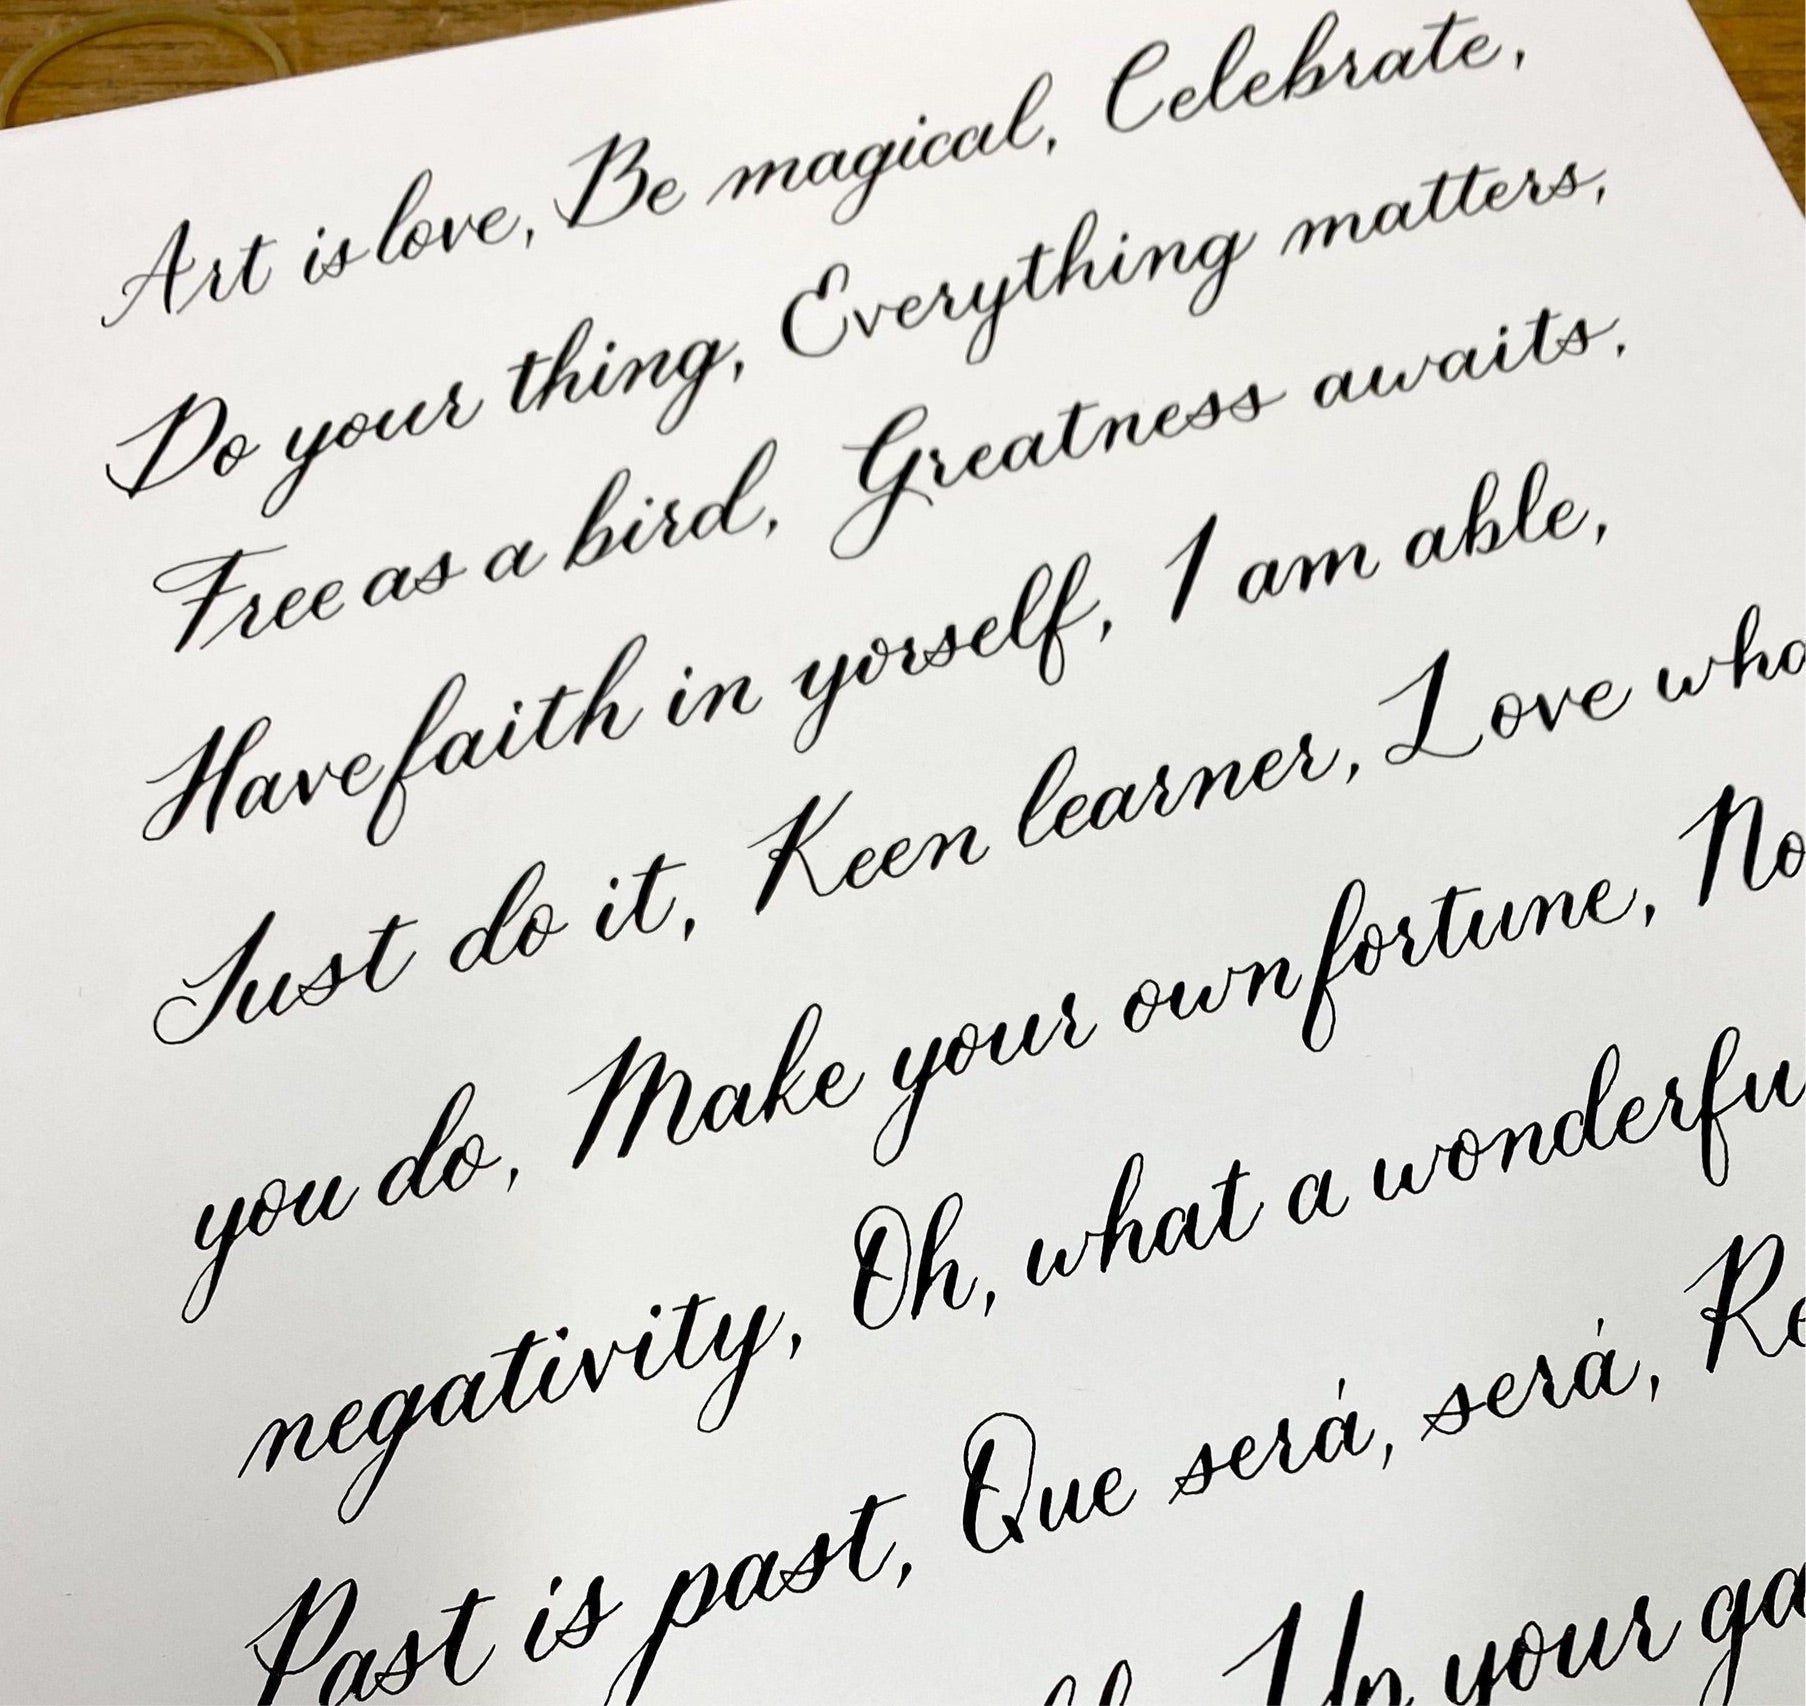 Art is love, Be magical, Celebrate,
Do your thing, Everything matters,
Free as a bird, Greatness awaits,
Have faith in yorself, I am able,
Just do it, Keen learner, Love
you do, Make your own fortune, No
negativity, Oh, what a
Past is past, Que será, será,
Up your